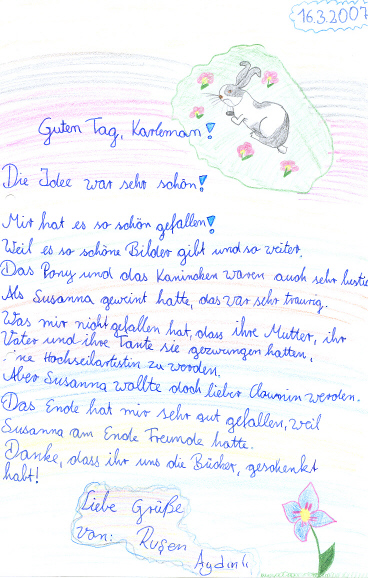 16.3.2007
Guten Tag, Karleman!
Die Idee war sehr schön!
Mir hat es so schön gefallen!
Weil es so schöne Bilder gibt und so weiter.
Das Pony und das Kaninchen waren auch sehr lustig
Als Susanna geweint hatte, das war sehr traurig.
Was mir nicht gefallen hat, dass ihre Mutter, ihr
Vater und ihre Tante sie gezwungen hatten,
'ne Hochseilartistin zu werden.
Aber Susanna wollte doch lieber Clownin werden.
Das Ende hat mir sehr gut gefallen, weil
Susanna am Ende Freunde hatte.
Danke, dass ihr uns die Bücher, geschenkt
habt!
Liebe Grüße
von: Ruşen
Aydınlı